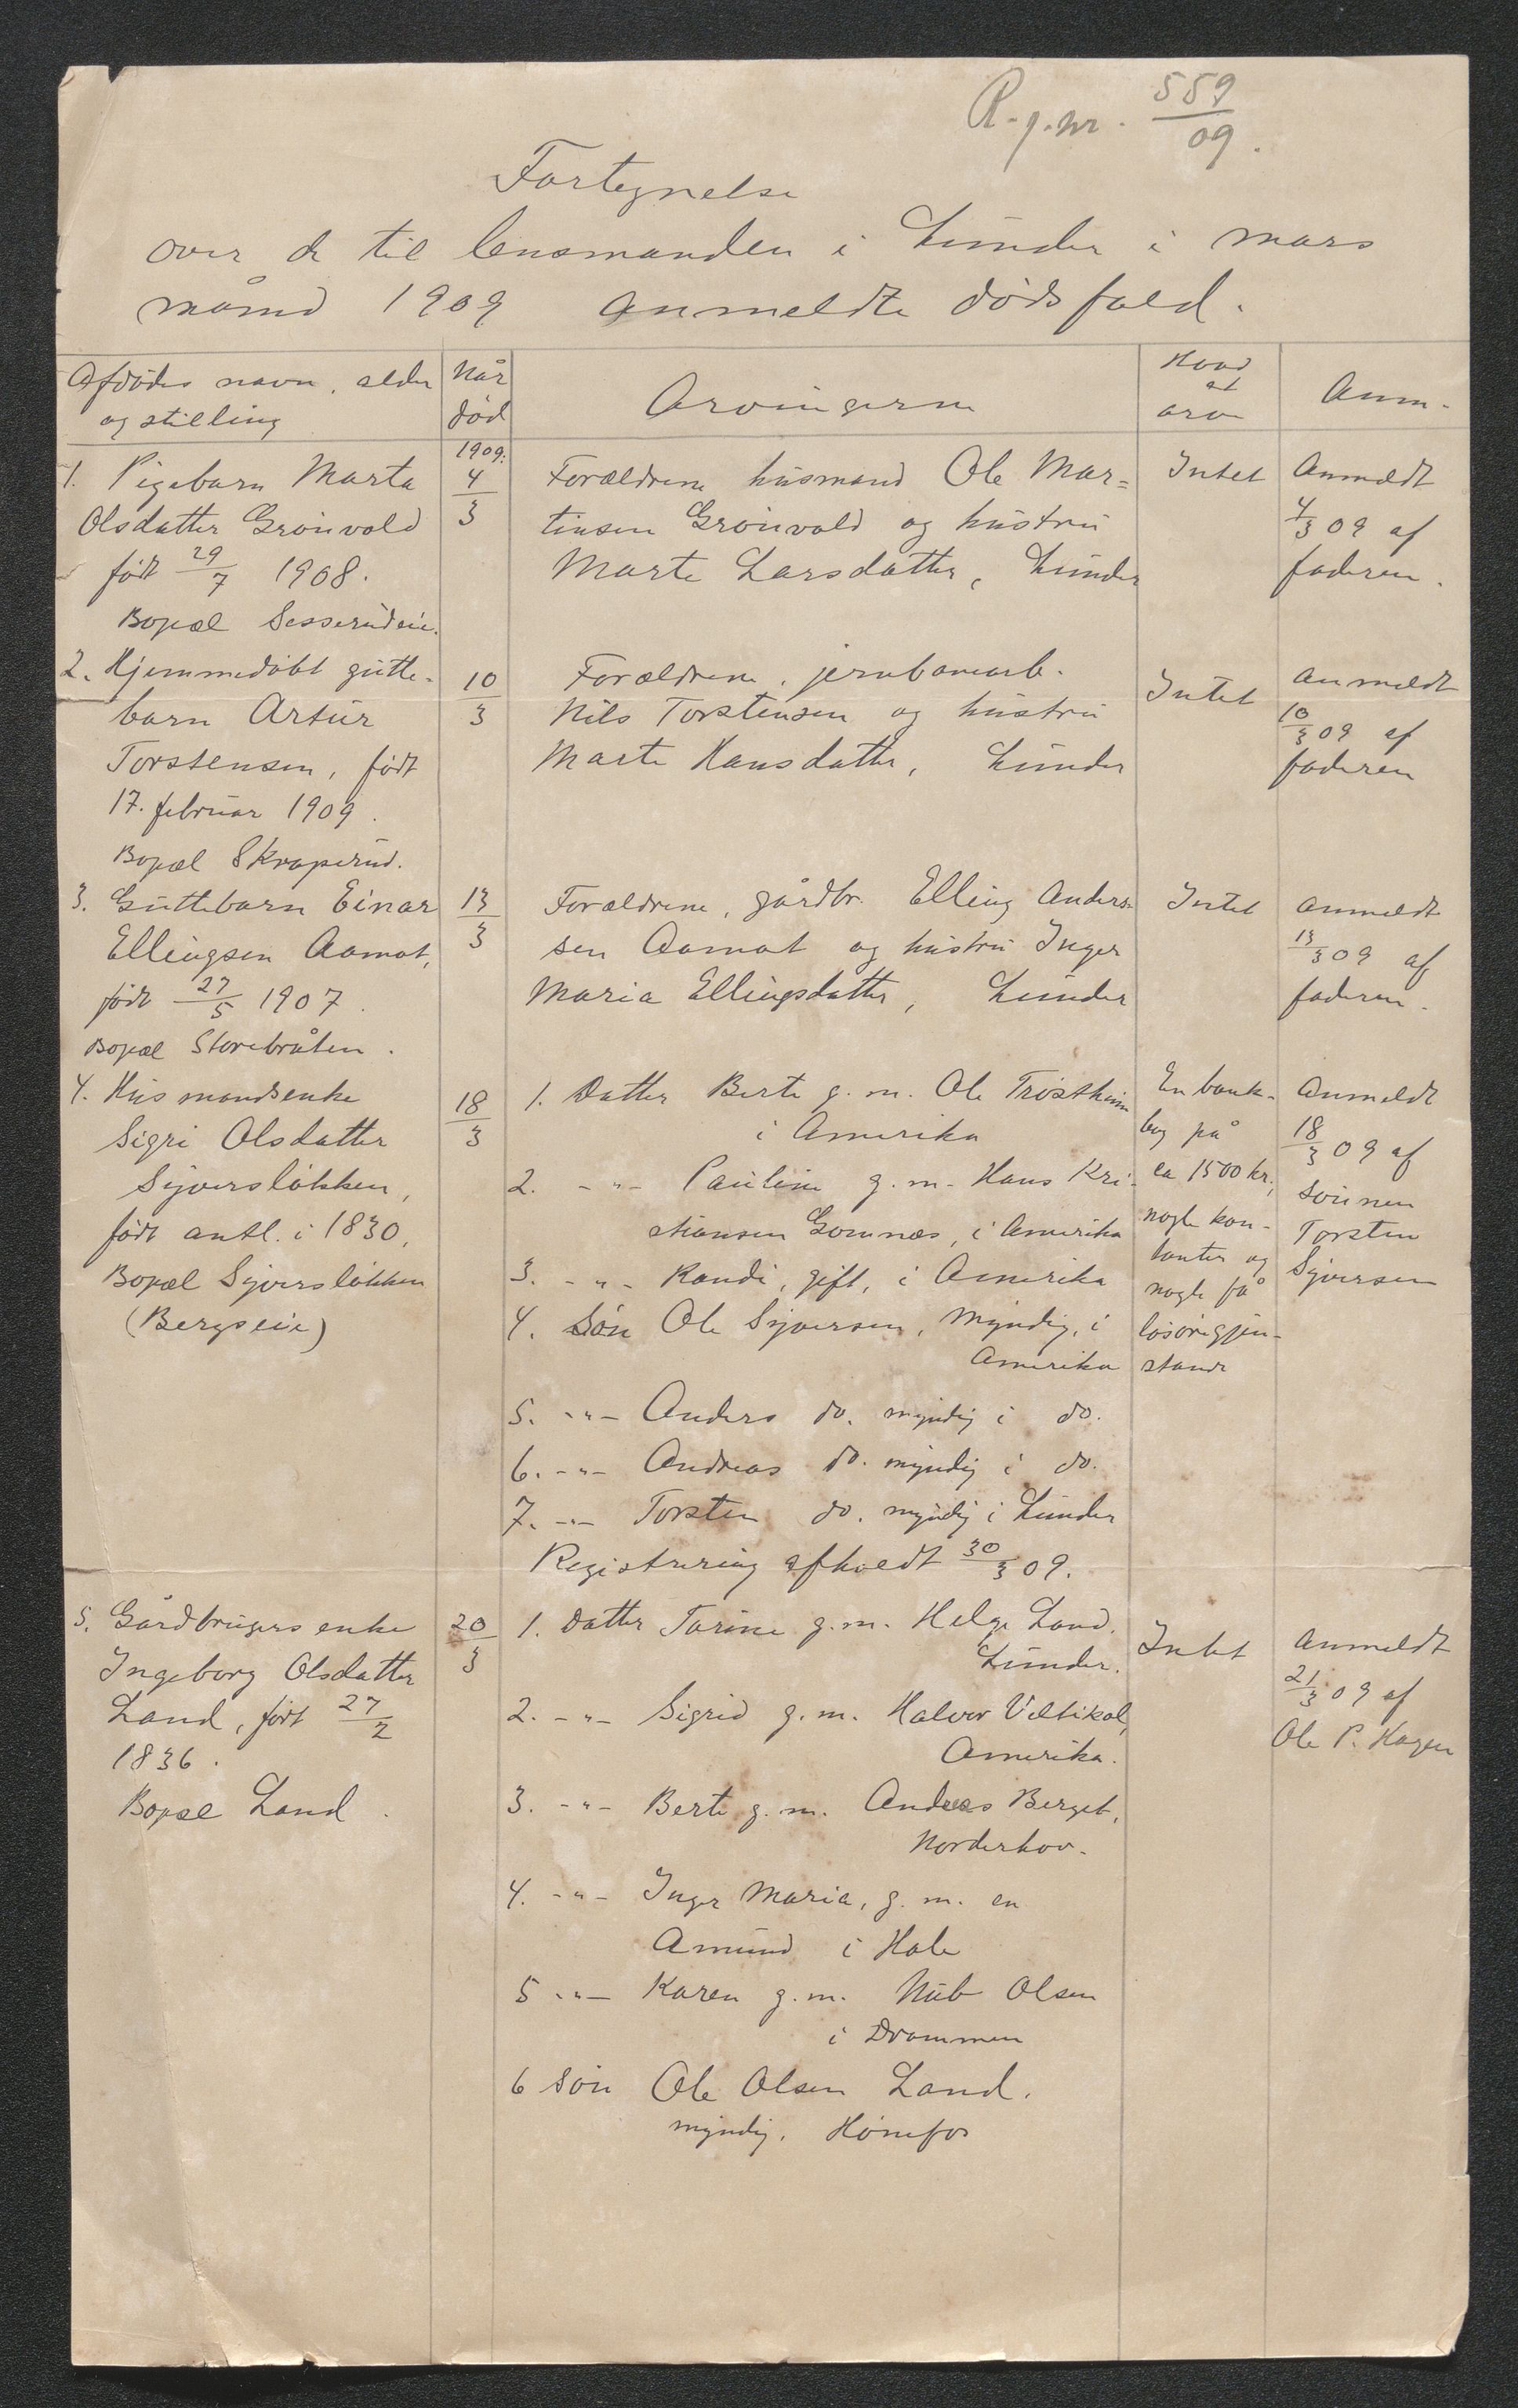 R.g.nr. 559/09.
Fortegnelse
over de til lensmanden i Lunder i mars
måned 1909 anmeldte dødsfald.
Afdødes navn, alder
og stilling
Når
død
Arvingerne
Hvad
at
arve
Anm.
1909.
1. Pigebarn Marta
Olsdatter Grønvold
født 29/7 1908.
Bopæl Sesserudeie.
4/3
Forældrene husmand Ole Mar=
tinsen Grønvold og hustru
Marte Larsdatter, Lunder
Intet
Anmeldt
4/3 09 af
faderen.
2. Hjemmedøbt gutte-
barn Artur
Torstensen, født
17. februar 1909.
Bopæl Skraperud.
10/3
Forældrene, jernbanearb.
Nils Torstensen og hustru
Marte Hansdatter, Lunder
Intet
anmeldt
10/3 09 af
faderen
3. Guttebarn Einar
Ellingsen Aamot,
født 27/5 1907.
Bopæl Storebråten.
13/3
Forældrene, gårdbr. Elling Anders-
sen Aamot og hustru Inger
Maria Ellingsdatter, Lunder
Intet
anmeldt
13/3 09 af
faderen.
4. Husmandsenke
Sigri Olsdatter
Sjversløkken,
født antl. i 1830,
Bopæl Sjversløkken
(Bergseie)
18/3
1. Datter Berte g.m. Ole Trøstheim
i Amerika
2. -"- Pauline g.m. Hans Kri-
stiansen Gomnæs, i Amerika
3. -"- Randi, gift, i Amerika
4. Søn Ole Sjversen, myndig, i
Amerika
5. -"- Anders do. myndig i do.
6. -"- Andreas do. myndig i do.
7. -"- Torsten do. myndig i Lunder
Registrering afholdt 30/3 09.
En bank-
bog på
ca 1500 kr.,
nogle kon-
tanter og
nogle få
løsøregjen-
stande
Anmeldt
18/3 09 af
sønnen
Torsten
Sjversen
5. Gårdbrugers enke
Ingeborg Olsdatter
Land, født 27/2
1836.
Bopæl Land.
20/3
1. Datter Torine g.m. Helge Land.
Lunder.
2. -"- Sigrid g.m. Halvor Veltikol,
Amerika.
3. -"- Berte g.m. Andreas Berget,
Norderhov.
4. -"- Inger Maria, g.m. en
Amund i Hole
5 -"- Karen g.m. Nub Olsen
i Drammen
6 Søn Ole Olsen Land.
myndig. Hønefos
Intet
Anmeldt
21/3 09 af
Ole P. Hagen